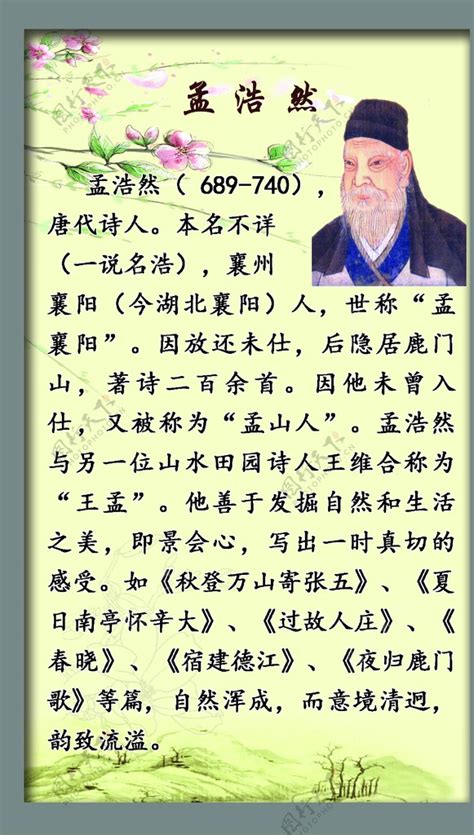 孟浩然
孟浩然（ 689-740），
唐代诗人。本名不详
（一说名浩），襄州
襄阳（今湖北襄阳）人，世称“孟
襄阳”。因放还未仕，后隐居鹿门
山，著诗二百余首。因他未曾入
仕，又被称为“孟山人”。孟浩然
与另一位山水田园诗人王维合称为
“王孟”。他善于发掘自然和生活
之美，即景会心，写出一时真切的
感受。如《秋登万山寄张五》、《夏
日南亭怀辛大》、《过故人庄》、《
春晓》、《宿建德江》、《夜归鹿门
歌》等篇，自然浑成，而意境清迥，
韵致流溢。